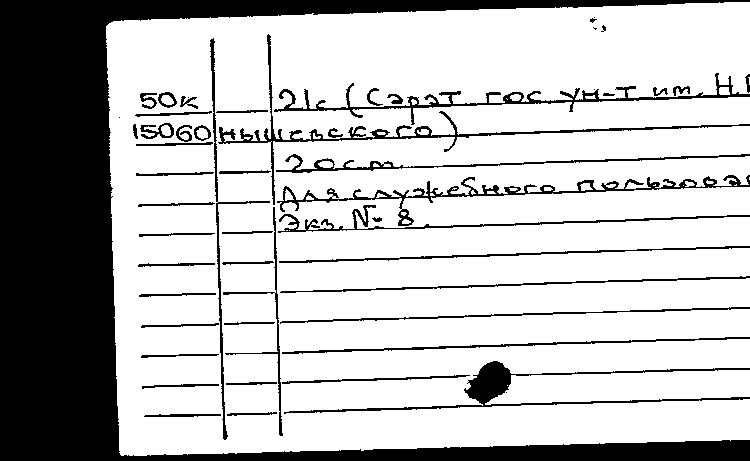 50к 21с (Сарат гос ун-т им. Н.
15060 нышевского)
20 cm
Для служебного пользова
Экз. № 8.